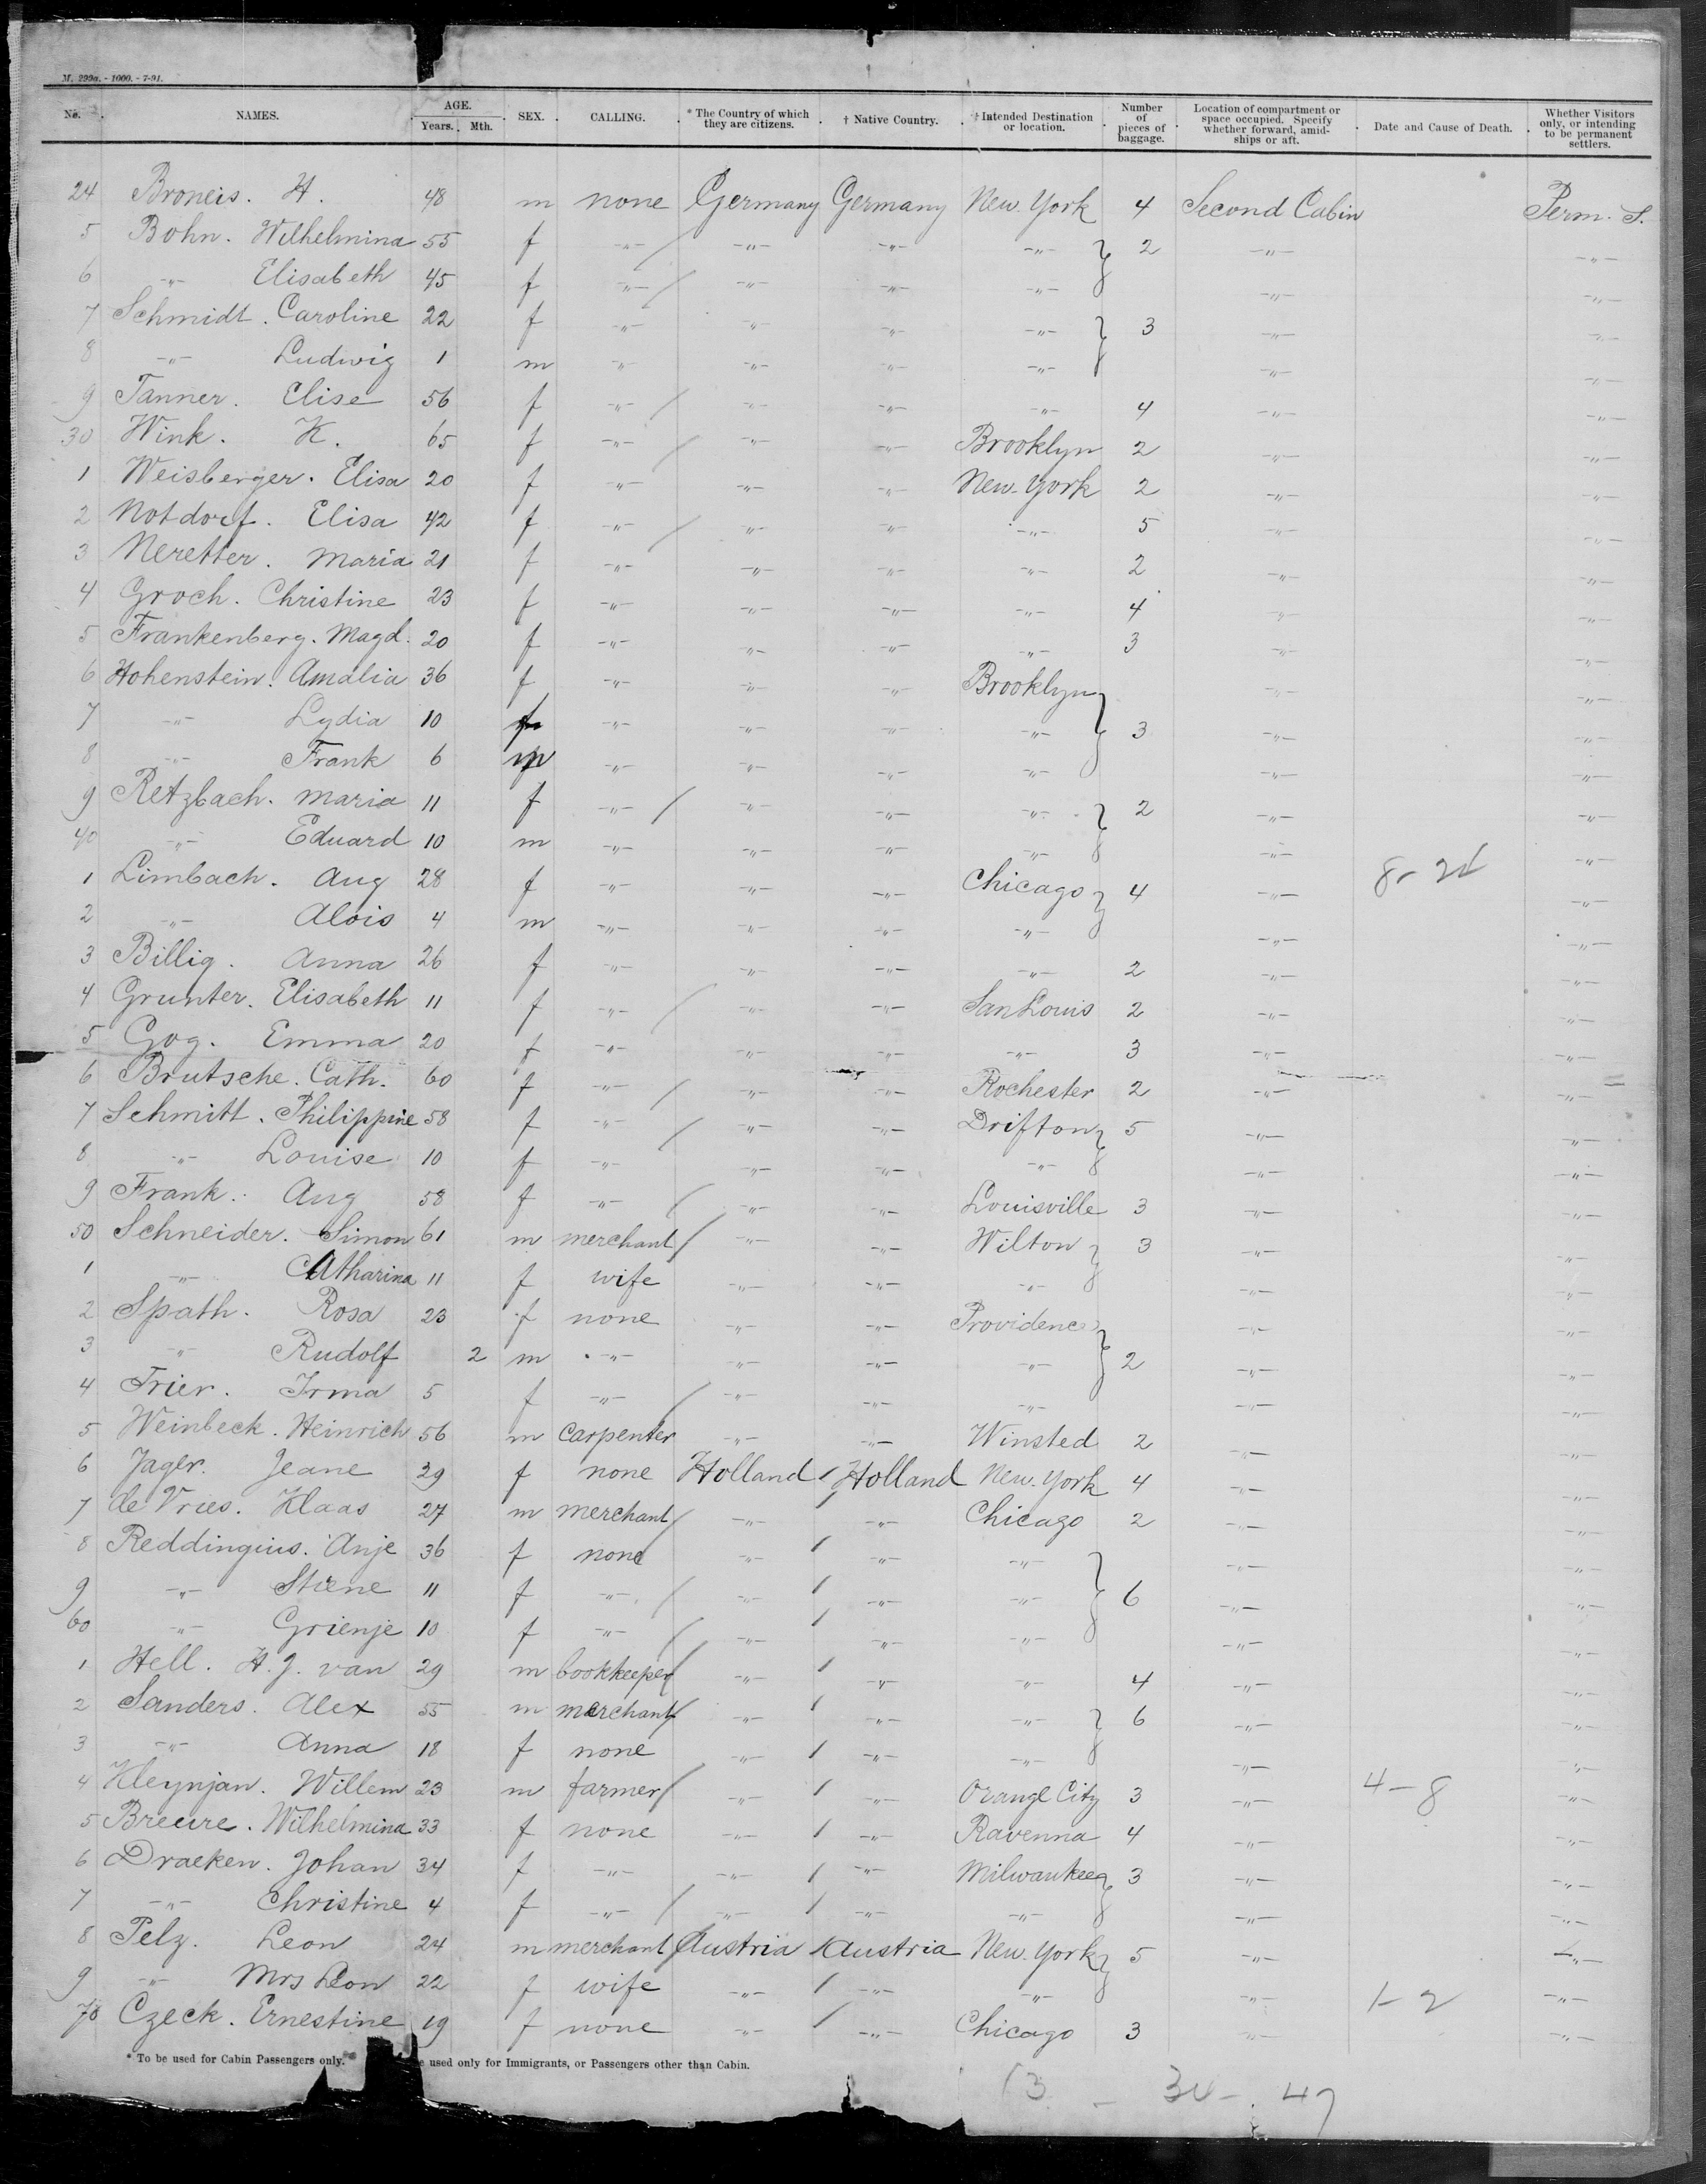 M. 299a. - 1000. - 7-91.
No. NAMES. AGE. Years. Mth. SEX. CALLING. * The Country of which they are citizens. † Native Country. † Intended Destination or location. Number of pieces of baggage. Location of compartment or space occupied. Specify whether forward, amidships or aft. Date and Cause of Death. Whether Visitors only, or intending to be permanent settlers.
24 Broneis. H. 48 m none Germany Germany New-York 4 Second Cabin Perm. S.
5 Bohn. Wilhelmina 55 f -"- -"- -"- -"- 2 -"- -"-
6 -"- Elisabeth 45 f -"- -"- -"- -"- -"- -"-
7 Schmidt. Caroline 22 f -"- -"- -"- -"- 3 -"- -"-
8 -"- Ludwig 1 m -"- -"- -"- -"- -"- -"-
9 Tanner. Elise 56 f -"- -"- -"- -"- 4 -"- -"-
30 Wink. K. 65 f -"- -"- -"- Brooklyn 2 -"- -"-
1 Weisberger. Elisa 20 f -"- -"- -"- New-York 2 -"- -"-
2 Notdorf. Elisa 42 f -"- -"- -"- -"- 5 -"- -"-
3 Neretter. Maria 21 f -"- -"- -"- -"- 2 -"- -"-
4 Groch. Christine 23 f -"- -"- -"- -"- 4 -"- -"-
5 Frankenberg. Magd. 20 f -"- -"- -"- -"- 3 -"- -"-
6 Hohenstein. Amalia 36 f -"- -"- -"- Brooklyn -"- -"-
7 -"- Lydia 10 f -"- -"- -"- -"- 3 -"- -"-
8 -"- Frank 6 m -"- -"- -"- -"- -"- -"-
9 Retzbach. Maria 11 f -"- -"- -"- -"- 2 -"- -"-
40 -"- Eduard 10 m -"- -"- -"- -"- -"- -"-
1 Limbach. Aug 28 f -"- -"- -"- Chicago 4 -"- -"-
2 -"- Alois 4 m -"- -"- -"- -"- -"- -"-
3 Billig. Anna 26 f -"- -"- -"- -"- 2 -"- -"-
4 Grunter. Elisabeth 11 f -"- -"- -"- San Louis 2 -"- -"-
5 Gog. Emma 20 f -"- -"- -"- -"- 3 -"- -"-
6 Brutsche. Cath. 60 f -"- -"- -"- Rochester 2 -"- -"-
7 Schmitt. Philippine 58 f -"- -"- -"- Drifton 5 -"- -"-
8 -"- Louise 10 f -"- -"- -"- -"- -"- -"-
9 Frank. Aug 58 f -"- -"- -"- Louisville 3 -"- -"-
50 Schneider. Simon 61 m merchant -"- -"- Wilton 3 -"- -"-
1 -"- Catharina 11 f wife -"- -"- -"- -"- -"-
2 Spath. Rosa 23 f none -"- -"- Providence -"- -"-
3 -"- Rudolf 2 m -"- -"- -"- -"- 2 -"- -"-
4 Trier. Irma 5 f -"- -"- -"- -"- -"- -"-
5 Weinbeck. Heinrich 56 m carpenter -"- -"- Winsted 2 -"- -"-
6 Jager. Jeane 29 f none Holland Holland New-York 4 -"- -"-
7 de Vries. Klaas 27 m merchant -"- -"- Chicago 2 -"- -"-
8 Reddingius. Anje 36 f none -"- -"- -"- -"- -"-
9 -"- Stiene 11 f -"- -"- -"- -"- 6 -"- -"-
60 -"- Grienje 10 f -"- -"- -"- -"- -"- -"-
1 Hell. H.J. van 29 m bookkeeper -"- -"- -"- 4 -"- -"-
2 Sanders. Alex 55 m merchant -"- -"- -"- 6 -"- -"-
3 -"- Anna 18 f none -"- -"- -"- -"- -"-
4 Kleynjan. Willem 23 m farmer -"- -"- Orange City 3 -"- 4-8 -"-
5 Breure. Wilhelmina 33 f none -"- -"- Ravenna 4 -"- -"-
6 Draeken. Johan 34 f -"- -"- -"- Milwaukee 3 -"- -"-
7 -"- Christine 4 f -"- -"- -"- -"- -"- -"-
8 Pelz. Leon 24 m merchant Austria Austria New-York 5 -"- -"-
9 -"- Mrs Leon 22 f wife -"- -"- -"- -"- 1-2 -"-
70 Czeck. Ernestine 19 f none -"- -"- Chicago 3 -"- -"-
* To be used for Cabin Passengers only. e used only for Immigrants, or Passengers other than Cabin.